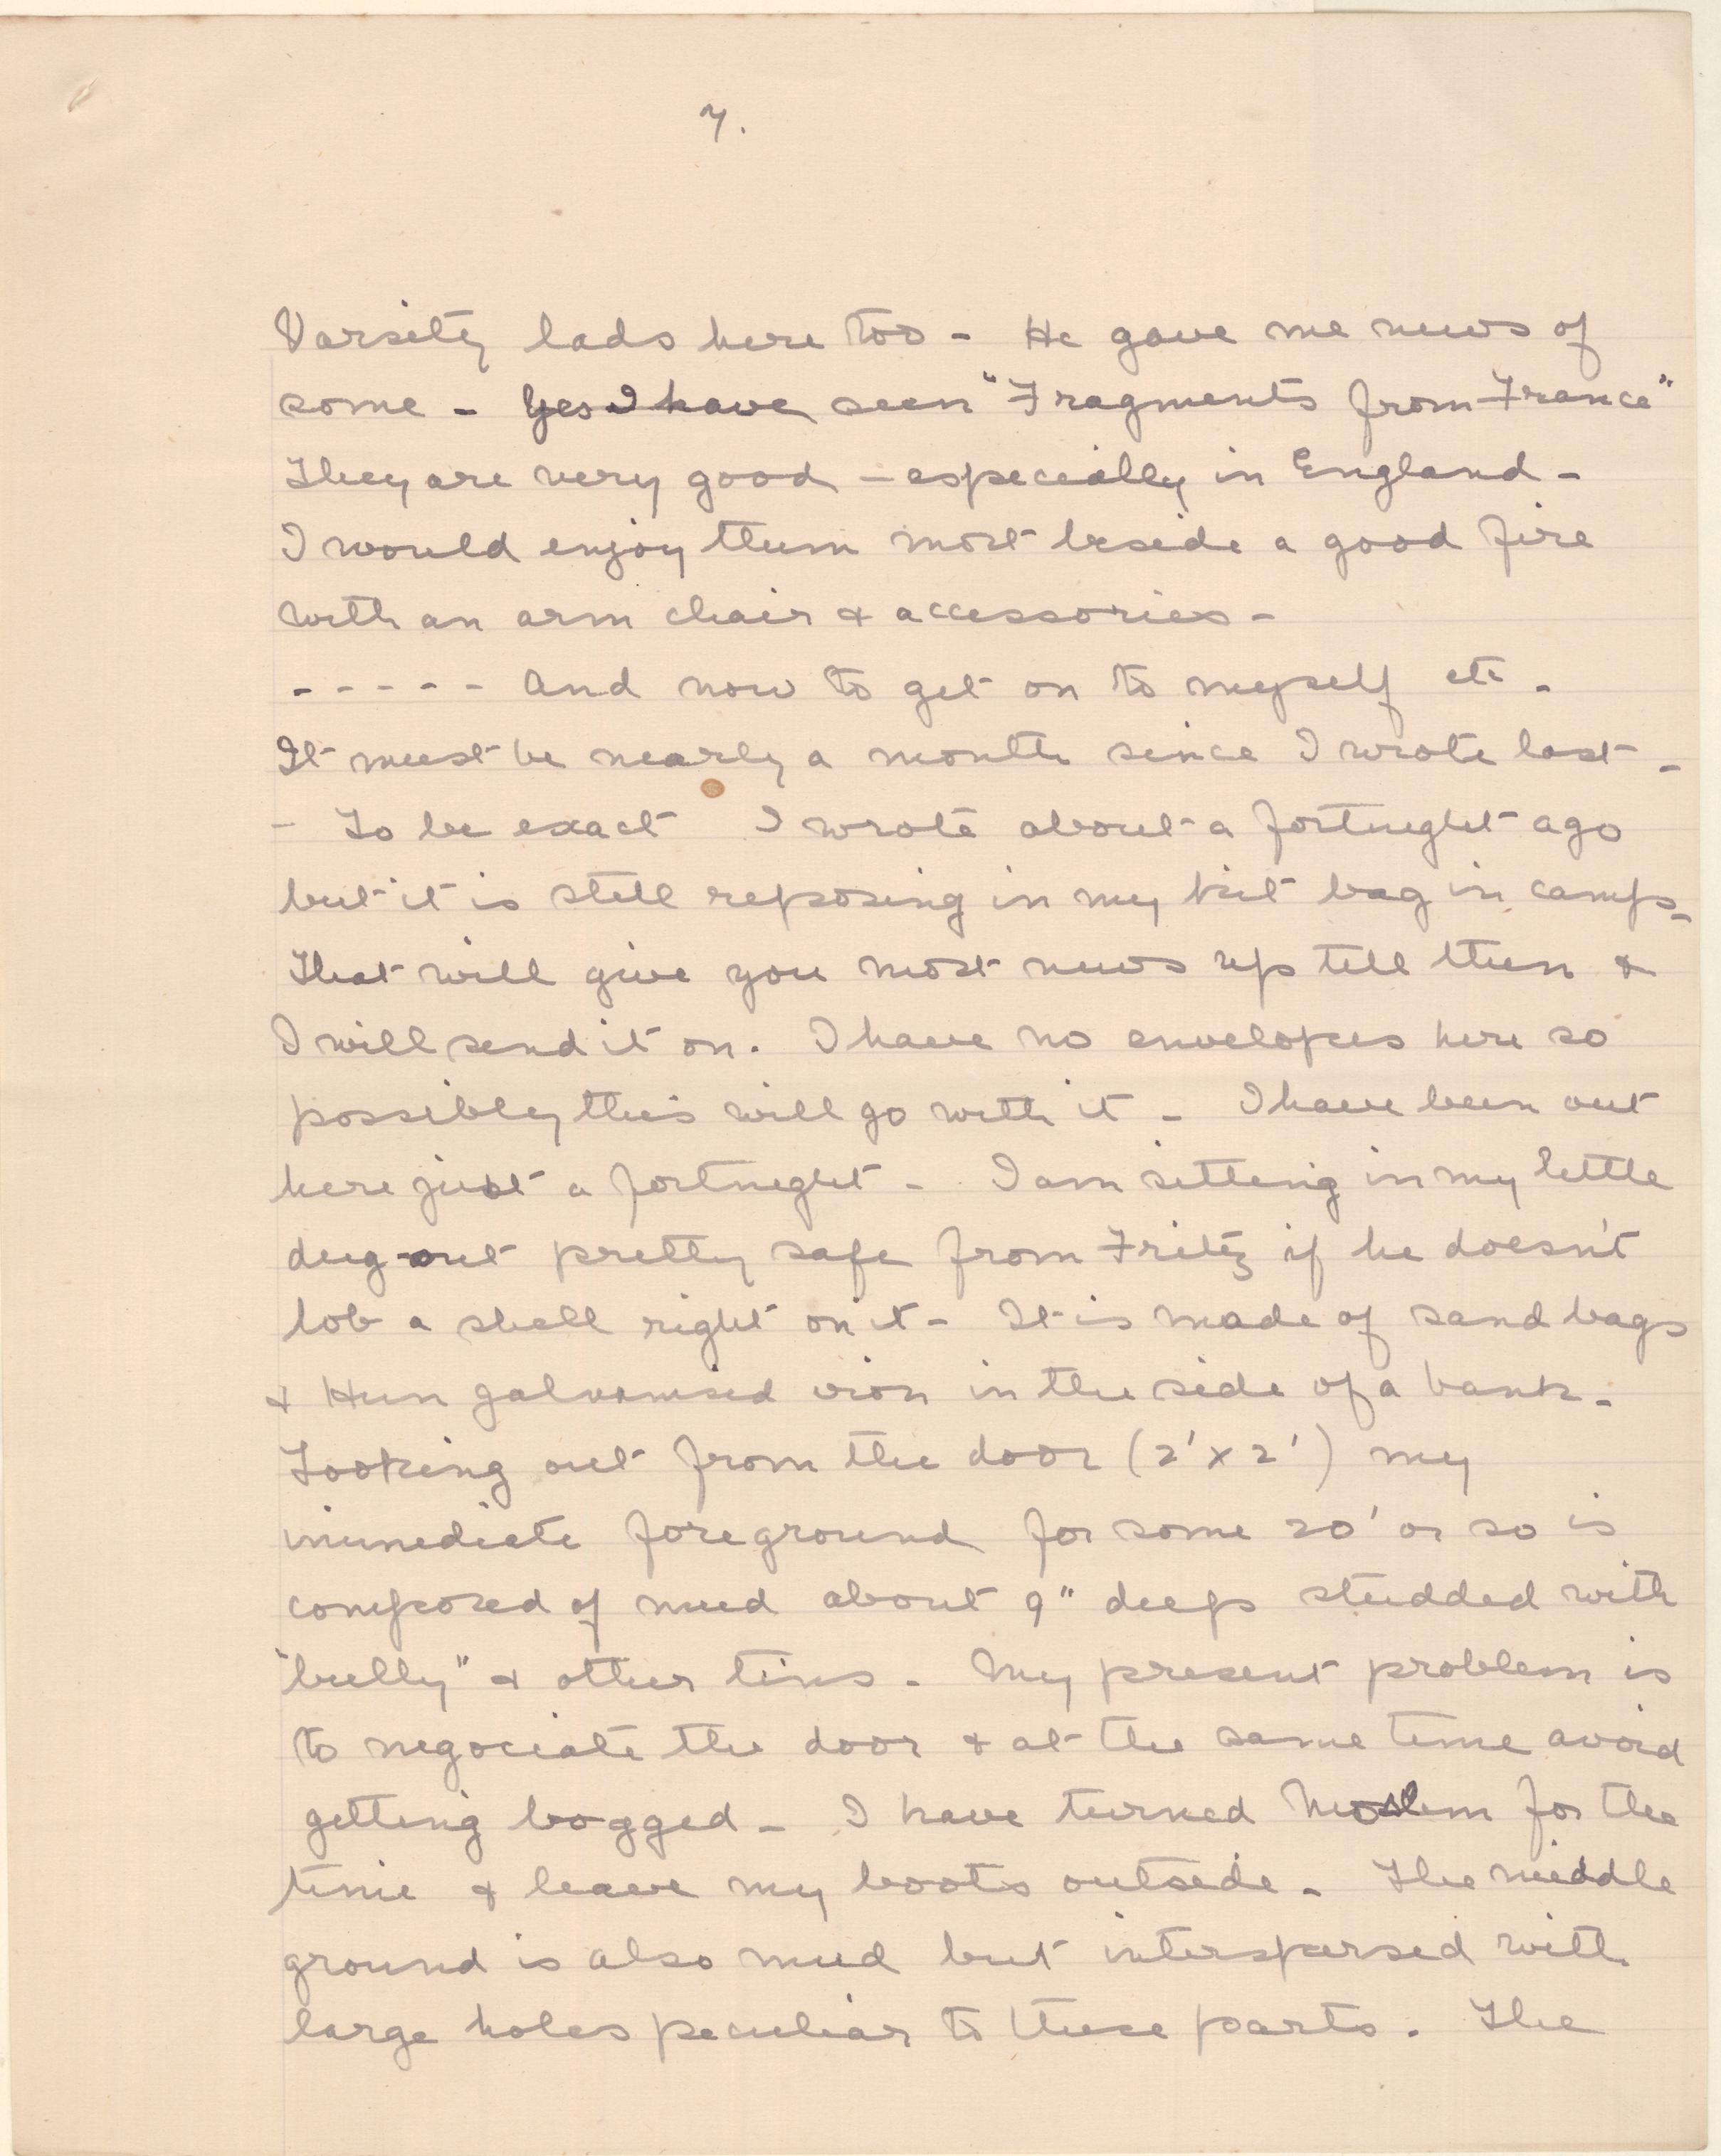 7.
Varsity lads here too - He gave me news of
some - Yes I have seen "Fragments from France"
They are very good - especially in England -
I would enjoy them most beside a good fire
with an arm chair & accessories -
- - - - - And now to get on to myself etc -
It must be nearly a month since I wrote last -
- To be exact I wrote about a fortnight ago
but it is still reposing in my kit bag in camp -
That will give you most news up till then &
I will send it on. I have no envelopes here so
possibly this will go with it - I have been out
here just a fortnight - I am sitting in my little
dug-out pretty safe from Fritz if he doesn't
lob a shell right on it - It is made of sand bags
& Hun galvanised iron in the side of a bank -
Looking out from the door (2' x 2') my
immediate foreground for some 20' or so is
composed of mud about 9" deep studded with
"bully" & other tins - My present problem is
to negociate the door & at the same time avoid
getting bogged - I have turned Moslem for the
time & leave my boots outside - The middle
ground is also mud but interspersed with
large holes peculiar to these parts. The